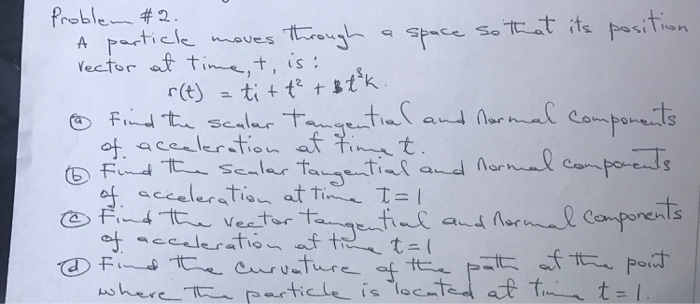 Problem #2.
A particle moves through a space so that its position
vector at time, t, is:
r(t) = ti + t² + t³k.
(a) Find the scalar tangential and normal components
of acceleration at time t.
(b) Find the scalar tangential and normal components
of acceleration at time t=1
(c) Find the vector tangential and normal components
of acceleration at time t=1
(d) Find the curvature of the path at the point
where the particle is located at time t=1.